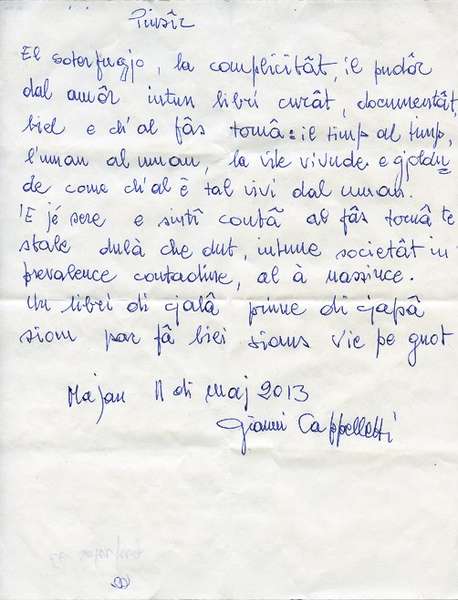 Pinsîr
El soterfugjo, la complicitât, il pudôr
dal amôr intun libri curât, documentât,
biel e ch'al fâs tornâ: il timp al timp,
l'uman al uman, la vite vivude e gjoldu
de come ch'al è tal vivi dal uman.
'E jé sere e sintî contâ al fâs tornâ te
stale dulà che dut, intune societât in
prevalence contadine, al à nassince.
Un libri di cjalâ prime di cjapâ
sium par fâ biei siums vie pe gnot
Majan 11 di maj 2013
Gianni Cappelletti